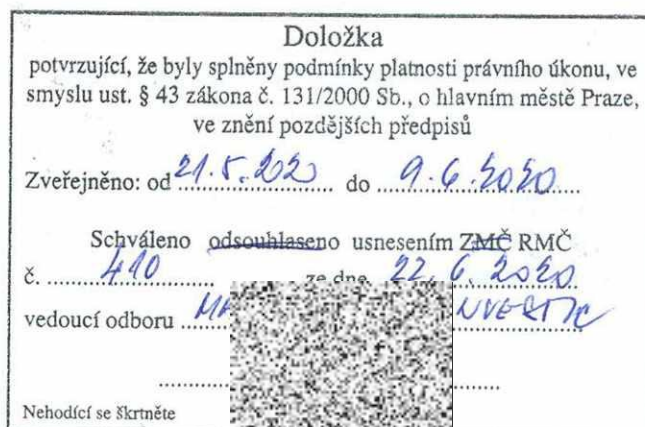 Doložka
potvrzující, že byly splněny podmínky platnosti právního úkonu, ve
smyslu ust. § 43 zákona č. 131/2000 Sb., o hlavním městě Praze,
ve znění pozdějších předpisů
Zveřejněno: od 21.5.2020 do 9.6.2020
Schváleno odsouhlaseno usnesením ZMČ RMČ
č. 410 ze dne 22.6.2020
vedoucí odboru
Nehodící se škrtněte